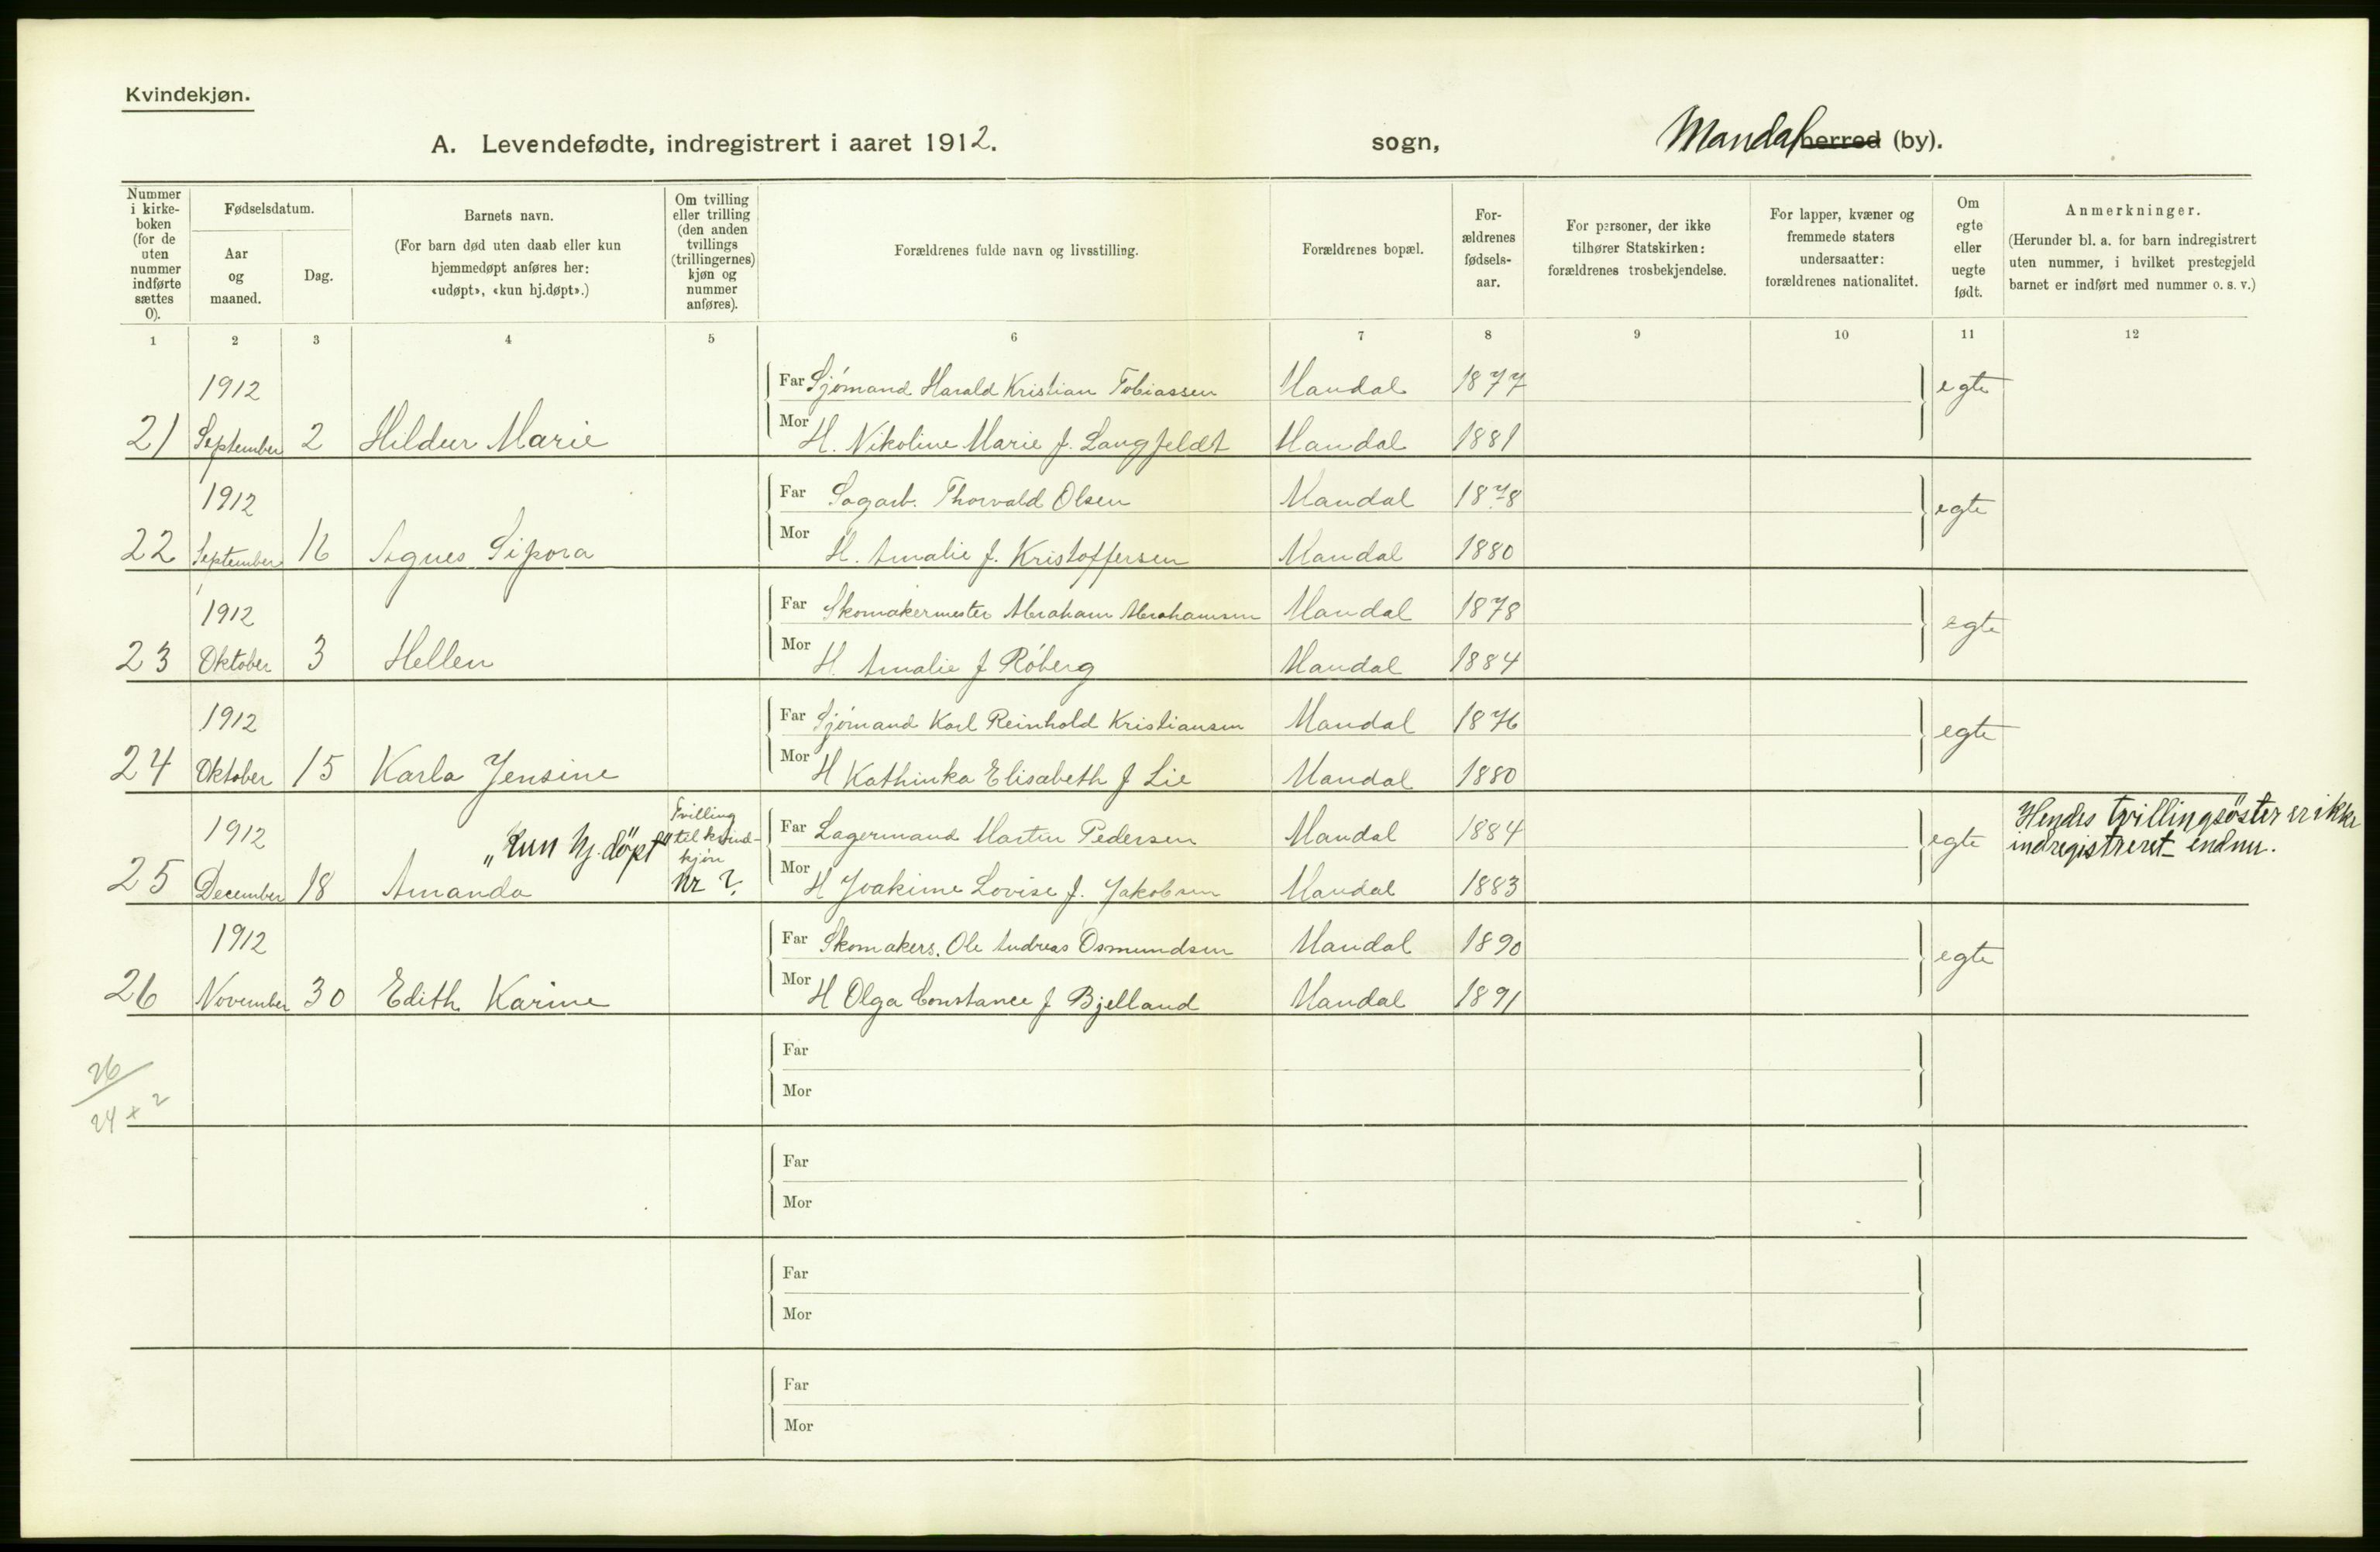 Kvindekjøn.
A. Levendefødte, indregistrert i aaret 1912. sogn, Mandal herred (by).
Nummer i kirke-boken (for de uten nummer indførte sættes 0).
Fødselsdatum.
Aar og maaned.
Dag.
Barnets navn.
(For barn død uten daab eller kun hjemmedøpt anføres her: «udøpt», «kun hj.døpt».)
Om tvilling eller trilling (den anden tvillings (trillingernes) kjøn og nummer anføres).
Forældrenes fulde navn og livsstilling.
Forældrenes bopæl.
For-ældrenes fødsels-aar.
For personer, der ikke tilhører Statskirken: forældrenes trosbekjendelse.
For lapper, kvæner og fremmede staters undersaatter: forældrenes nationalitet.
Om egte eller uegte født.
Anmerkninger.
(Herunder bl. a. for barn indregistrert uten nummer, i hvilket prestegjeld barnet er indført med nummer o. s. v.)
1 2 3 4 5 6 7 8 9 10 11 12
1912 Far Sjómand Harald Kristian Tobiassen Mandal 1877 egte
21 September 2 Hildur Marie Mor H. Nikoline Marie f. Langfeldt Mandal 1881
1912 Far Sagarb. Thorvald Olsen Mandal 1878 egte
22 September 16 Agnes Sipora Mor H. Amalie f. Kristoffersen Mandal 1880
1912 Far Skomakermester Abraham Abrahamsen Mandal 1878 egte
23 Oktober 3 Hellen Mor H. Amalie f Róberg Mandal 1884
1912 Far Sjómand Karl Reinhold Kristiansen Mandal 1876 egte
24 Oktober 15 Karla Jensine Mor H Kathinka Elisabeth f Lie Mandal 1880
1912 „kun hj. döpt" Tvilling til kvind-kjön Nr ?. Far Lagermand Martin Pedersen Mandal 1884 egte Hendes tvillingsöster er ikke
indregistreret endnu.
25 December 18 Amanda Mor H Joakime Lovise f. Jakobsen Mandal 1883
1912 Far Skomakers. Ole Andreas Osmundsen Mandal 1890 egte
26 November 30 Edith Karine Mor H Olga Constance f Bjelland Mandal 1891
26
24 + 2
Far
Mor
Far
Mor
Far
Mor
Far
Mor